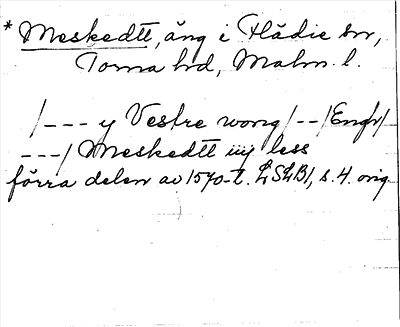 * Meskedtt, äng i Flädie sn,
Torna hd, Malm. l.
/--- y Vestre wong/--/Engh/
---/ Meskedtt iiij less
förra delen av 1570-t. LSLB1, s. 4. orig